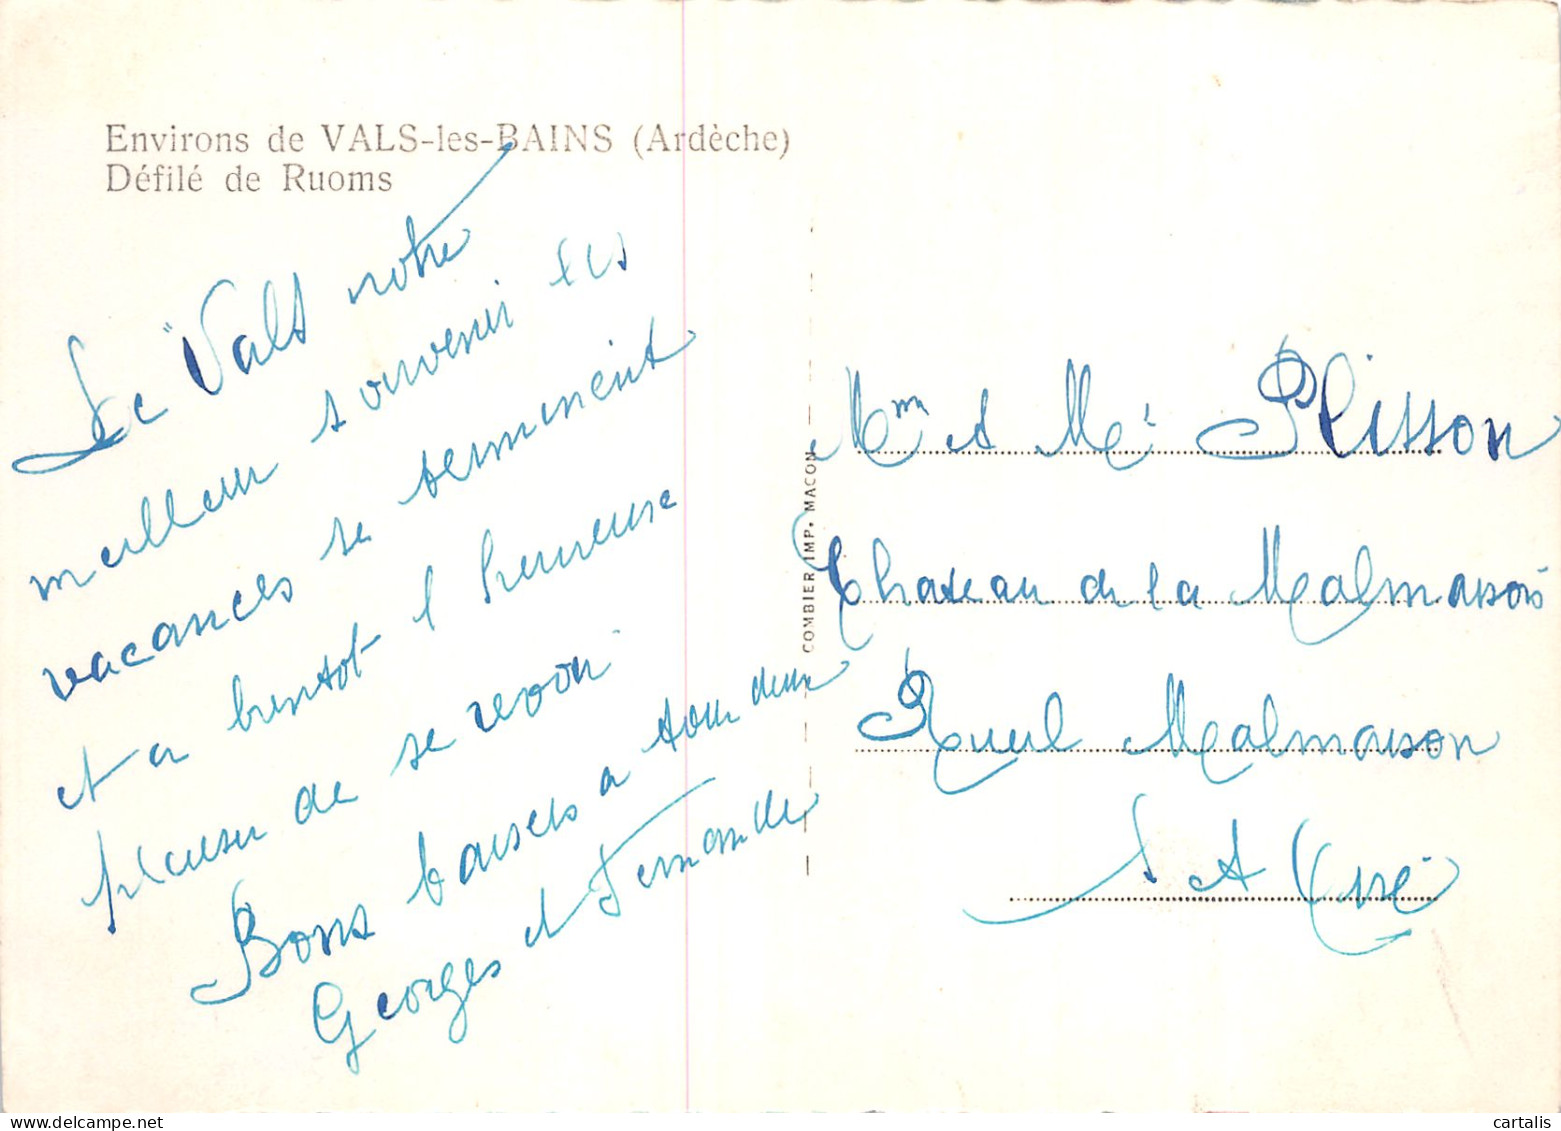 Environs de VALS-les-BAINS (Ardèche)
Défilé de Ruoms
De "Vals notre
meilleur souvenir les
vacances se terminent
et a bientot l heureuse
plaisir de se revoir
Bons baisers a tous deux
Georges et Fernande
COMBIER IMP. MACON
Mm et Mr Plisson
Chateau de la Malmaison
Rueil Malmaison
S et Oise
cartalis